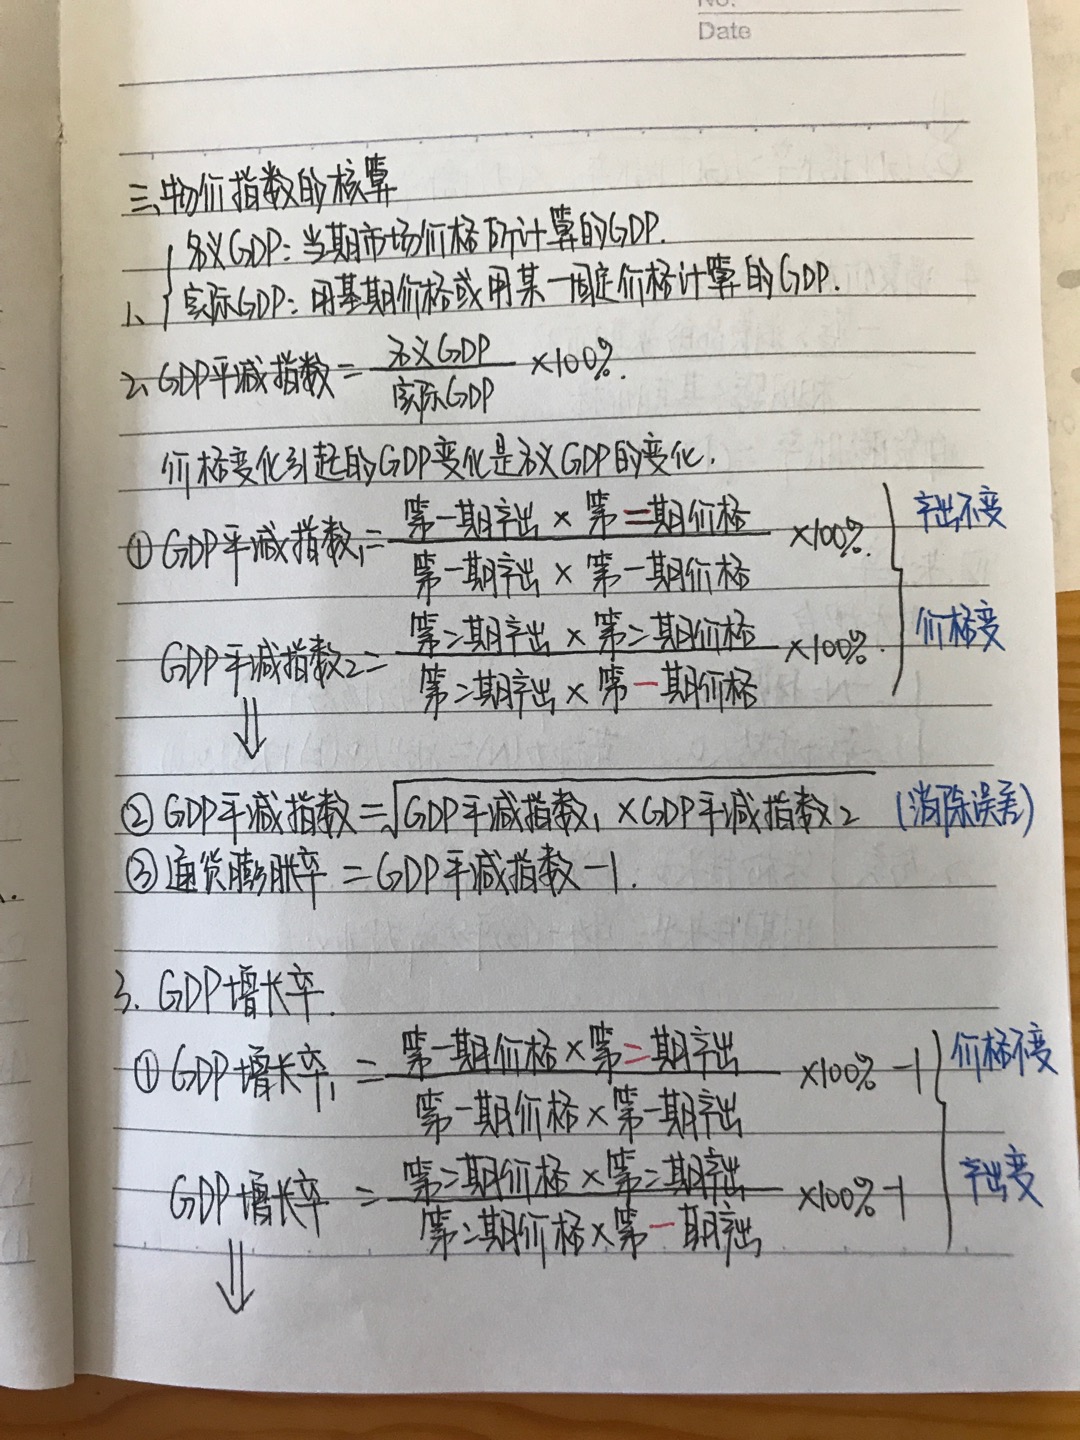 No.
Date
三、物价指数的核算
1、{名义GDP：当期市场价格所计算的GDP.
实际GDP：用基期价格或用某一固定价格计算的GDP.
2、GDP平减指数=名义GDP/实际GDP×100%.
价格变化引起的GDP变化是名义GDP的变化.
①GDP平减指数1=第一期产出×第二期价格/第一期产出×第一期价格×100%. 产出不变
GDP平减指数2=第二期产出×第二期价格/第二期产出×第一期价格×100%. 价格变
⇓
②GDP平减指数=√GDP平减指数1×GDP平减指数2 (消除误差)
③通货膨胀率=GDP平减指数-1.
3. GDP增长率.
①GDP增长率1=第一期价格×第二期产出/第一期价格×第一期产出×100%-1 价格不变
GDP增长率=第二期价格×第二期产出/第二期价格×第一期产出×100%-1 产出变
⇓